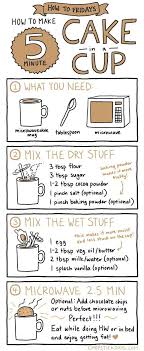 HOW TO FRIDAYS
HOW TO MAKE
5
MINUTE
CAKE
in a
CUP
1 WHAT YOU NEED
microwaveable
mug
tablespoon
microwave
2 MIX THE DRY STUFF
3 tbsp flour
3 tbsp sugar
1-2 tbsp cocoa powder
1 pinch salt (optional)
1 pinch baking powder (optional)
baking powder
makes it more
3 MIX THE WET STUFF
1 egg
1-2 tbsp veg oil/butter
2 tbsp milk/water
1 splash vanilla (optional)
this makes it more moist
and less stuck on the cup!
4 MICROWAVE 2.5 MIN
Optional: Add chocolate chips
or nuts before microwaving
Perfect!!!
Eat while doing HW or in bed
and enjoy getting fat!